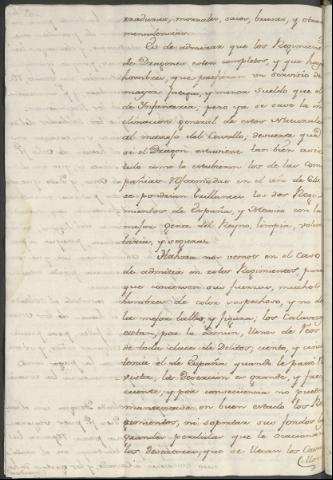 menudencias.
Es de admirar que los Regimientos
de Dragones esten completos, y que haya
hombres, que prefieran un servicio de
mayor fatiga, y menor sueldo que el
de Infanteria; pero ya se save la in
clinacion general de estos Naturales
al manejo del Cavallo, de suerte que
si el Dragon estuviese tan bien asis
tido como lo estubieron los de las com
pañias en el año de
se pondrian brillantes los dos Regi
mientos de España, y Mexico con la
mejor gente del Reyno, limpia, volun
taria, y segura.
Ahora nos vemos en el Caso
de admitir en estos Regimientos, para
que conserven sus fuerzas, muchos
hombres de color sospechoso, y no de
la mejor talla, y figura; los Calavozos
estan, por lo comun, llenos de Reos
de toda clase de Delitos; ciento, y cin
tenia el de España quando le pasé Re
vista; la Desercion es grande, y fre
cuente, y por consecuencia no pueden
mantenerse en buen estado los Re
gimientos, ni soportar sus fondos la
grande perdida que le ocasionan
los desertores, que se llevan los Cava
llos